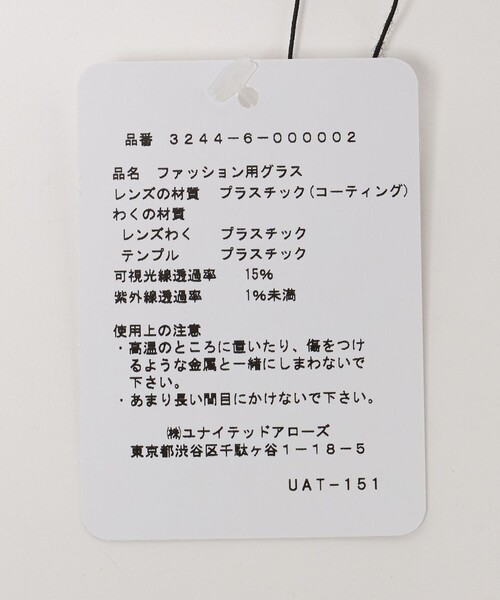 品番 3244-6-000002
品名 ファッション用グラス
レンズの材質 プラスチック(コーティング)
わくの材質
レンズわく プラスチック
テンプル プラスチック
可視光線透過率 15%
紫外線透過率 1%未満
使用上の注意
・高温のところに置いたり、傷をつけ
るような金属と一緒にしまわないで
下さい。
・あまり長い間目にかけないで下さい。
㈱ユナイテッドアローズ
東京都渋谷区千駄ヶ谷1-18-5
UAT-151